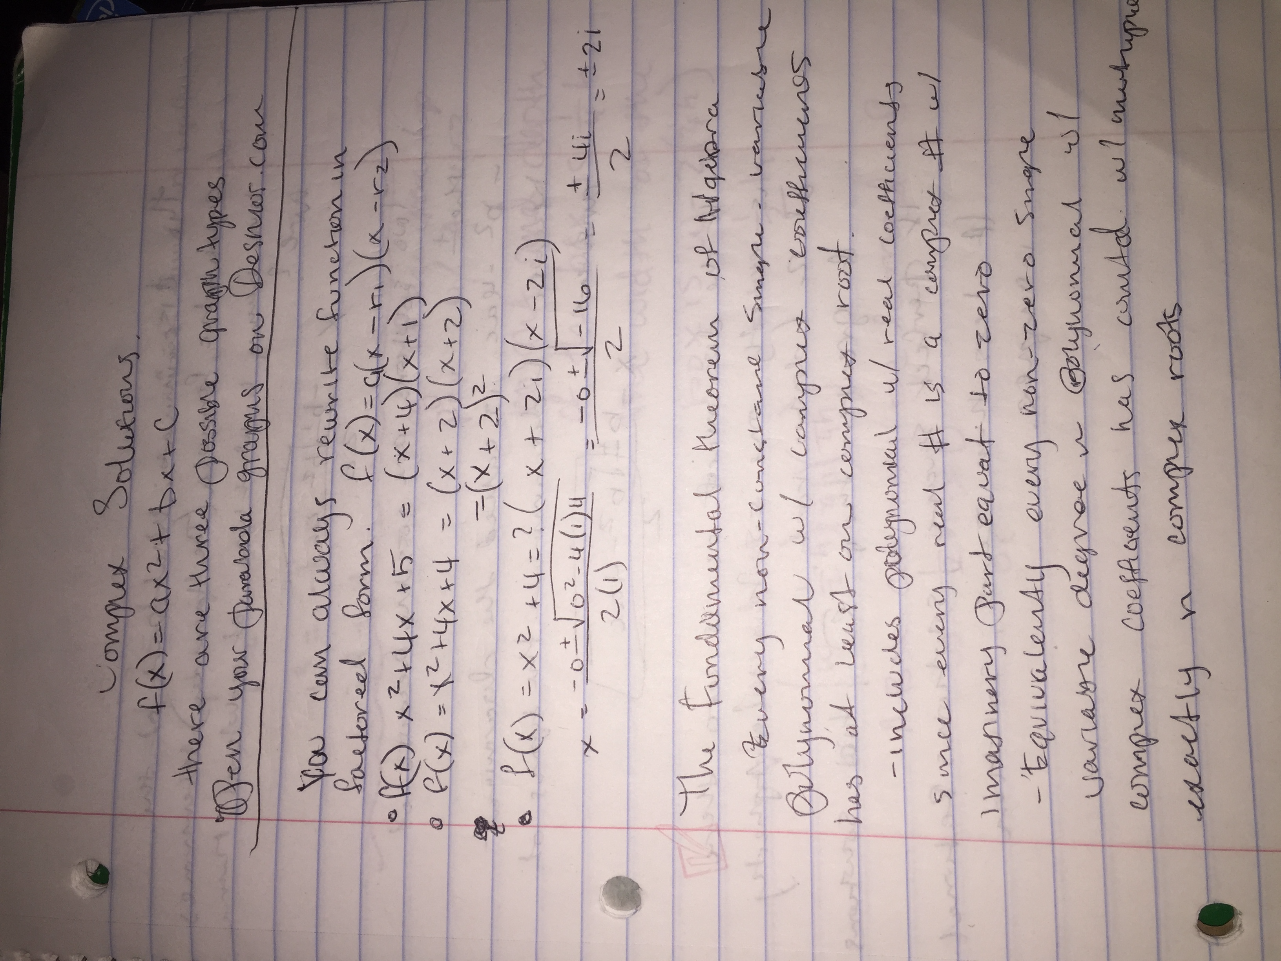 Complex Solutions.
f(x) = ax2 + bx + C
there are three possible graph types
Open your parabola graphs on Desmos.com
You can always rewrite function in
factored form. f(x) = a(x - r1)(x - r2)
• f(x) x² + 4x + 5 = (x + 4)(x + 1)
• f(x) = x² + 4x + 4 = (x + 2)(x + 2)
= (x + 2)²
• f(x) = x² + 4 = ? (x + 2i)(x - 2i)
x = -0 ± √0² - 4(1)4 / 2(1) = -0 ± √-16 / 2 = ± 4i / 2 = ± 2i
The Fundamental theorem of Algebra
Every non-constant single-variable
Polynomial w/ complex coefficients
has at least on complex root.
- includes polynomial w/ real coefficients
since every real # is a complex # w/
imaginary part equal to zero
- Equivalently every non-zero single
variable degree n Polynomial w/
complex coefficients has could w/ multiple
exactly n complex roots